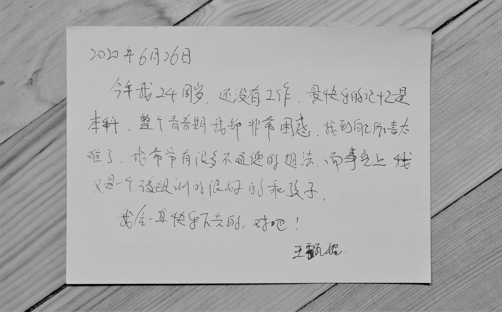 2020年6月26日
今年我24周岁，还没有工作，最快乐的记忆是
本科，整个青春期我都非常困惑，找到自己所喜太
难了，我常常有很多不适宜的想法，而事实上我
只是一个被规训的很好的乖孩子。
我会一直快乐下去的，对吧！
王